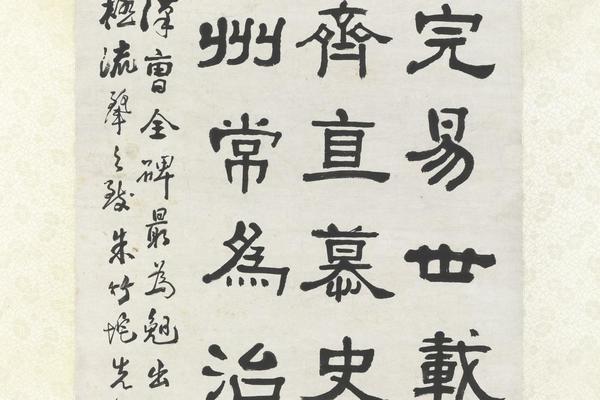 完易世載
齊直慕史
州常為治
漢曹全碑最為晚出
極流之致朱竹垞先